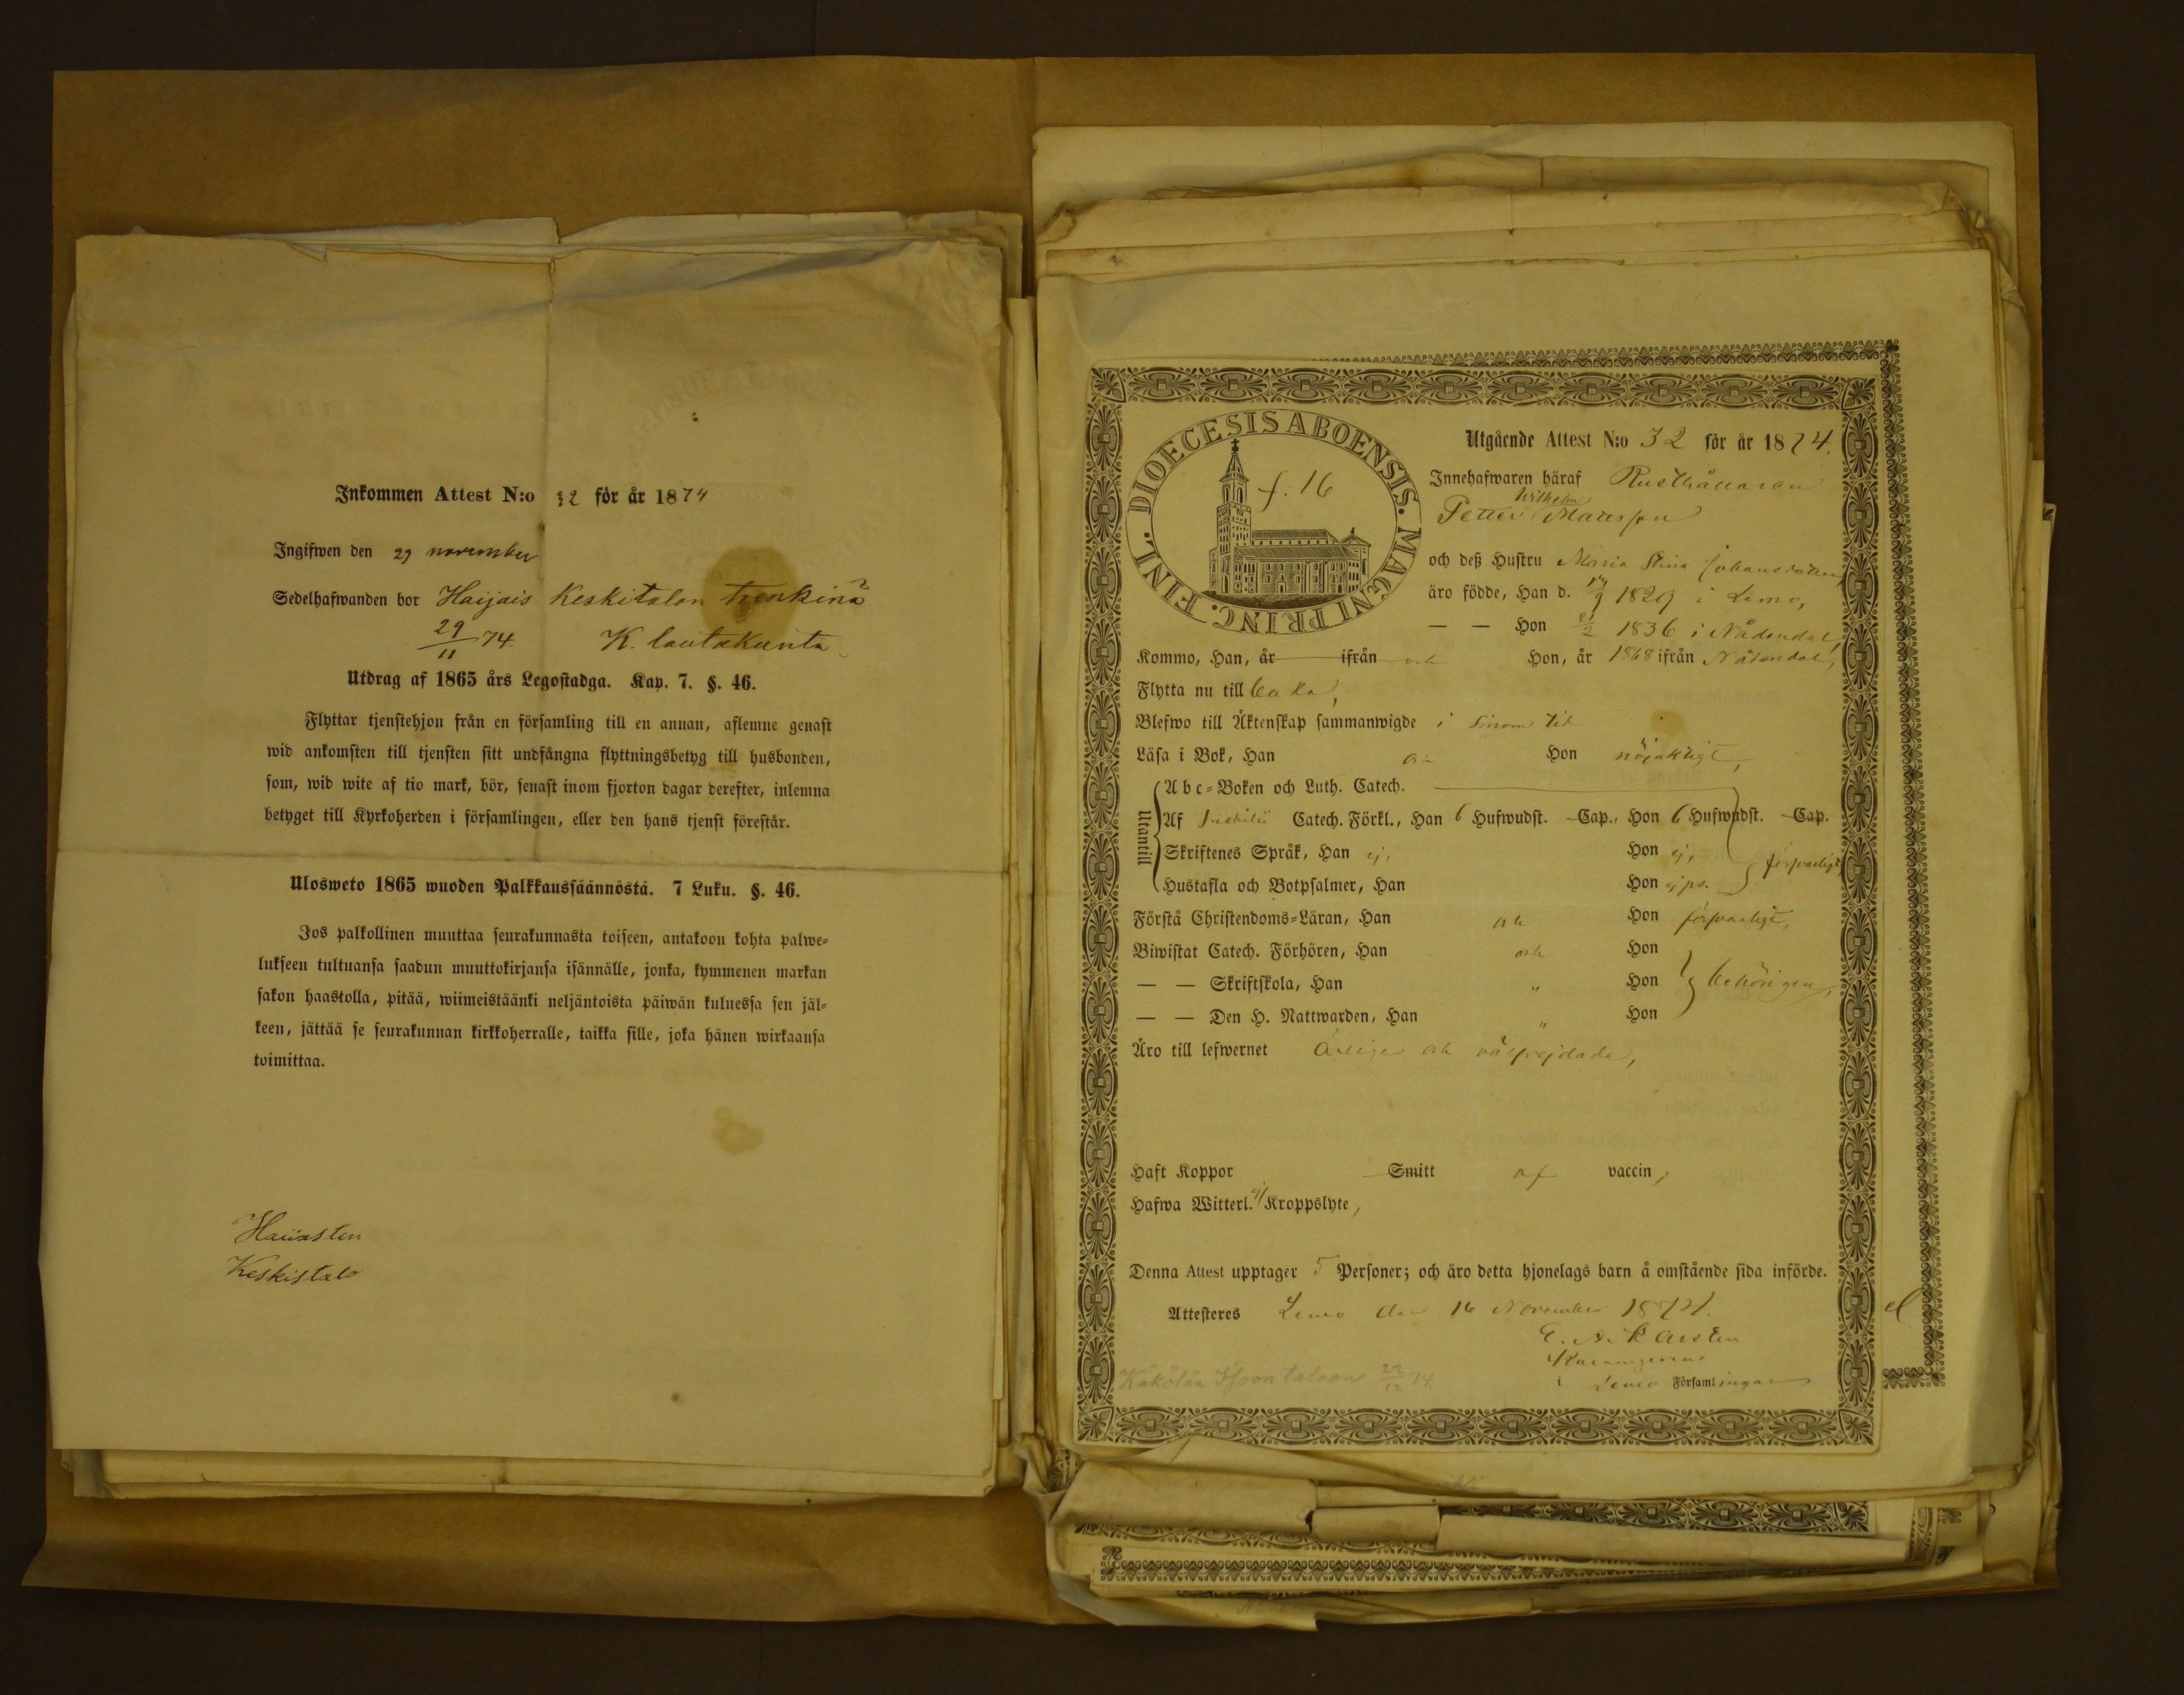 Inkommen Attest N:o 32 för år 1874
Ingifwen den 29 november
Sedelhafwanden bor Haijais Keskitalon trenkinä
29/11 74. K. lautakunta
Utdrag af 1865 års Legostadga. Kap. 7. §. 46.
Flyttar tjenstehjon från en församling till en annan, aflemne genast
wid ankomsten till tjensten sitt undfångna flyttningsbetyg till husbonden,
som, wid wite af tio mark, bör, senast inom fjorton dagar derefter, inlemna
betyget till Kyrkoherden i församlingen, eller den hans tjenst förestår.
Ulosweto 1865 wuoden Palkkaussäännöstä. 7 Luku. §. 46.
Jos palkollinen muuttaa seurakunnasta toiseen, antakoon kohta palwe-
lukseen tultuansa saadun muuttokirjansa isännälle, jonka, kymmenen markan
sakon haastolla, pitää, wiimeistäänki neljäntoista päiwän kuluessa sen jäl-
keen, jättää se seurakunnan kirkkoherralle, taikka sille, joka hänen wirkaansa
toimittaa.
Haijasten
Keskistalo
DIOECESIS ABOENSIS. MAGNI PRINC. FINL.
f. 16
Utgående Attest N:o 32 för år 1874.
Innehafwaren häraf Rusthållaren
Wilhelm
Petter Matsson
och deß Hustru Maria Stina Johansdotter
äro födde, Han d. 1829 i Lemo,
— — Hon 1836 i Nådendal,
Kommo, Han, år ifrån och Hon, år 1868 ifrån Nådendal,
Flytta nu till
Blefwo till Äktenskap sammanwigde i sinom tid
Läsa i Bok, Han och Hon nöjaktigt,
Utantill
Abc-Boken och Luth. Catech.
Af Svebilii Catech. Förkl., Han 6 Hufwudst. Cap., Hon 6 Hufwudst. Cap.
Skriftenes Språk, Han ej, Hon ej, försvarligt
Hustafla och Botpsalmer, Han Hon ej ps.
Förstå Christendoms-Läran, Han och Hon försvarligt,
Biwistat Catech. Förhören, Han och Hon
— — Skriftskola, Han " Hon behörigen,
— — Den H. Nattwarden, Han " Hon
Äro till lefwernet ärlige och välfrejdade,
Haft Koppor Smitt af vaccin,
Hafwa Witterl. ej Kroppslyte,
Denna Attest upptager 5 Personer; och äro detta hjonelags barn å omstående sida införde.
Attesteres Lemo den 16 November 1874.
i Lemo Församlingar
Käkölän Isoon taloon